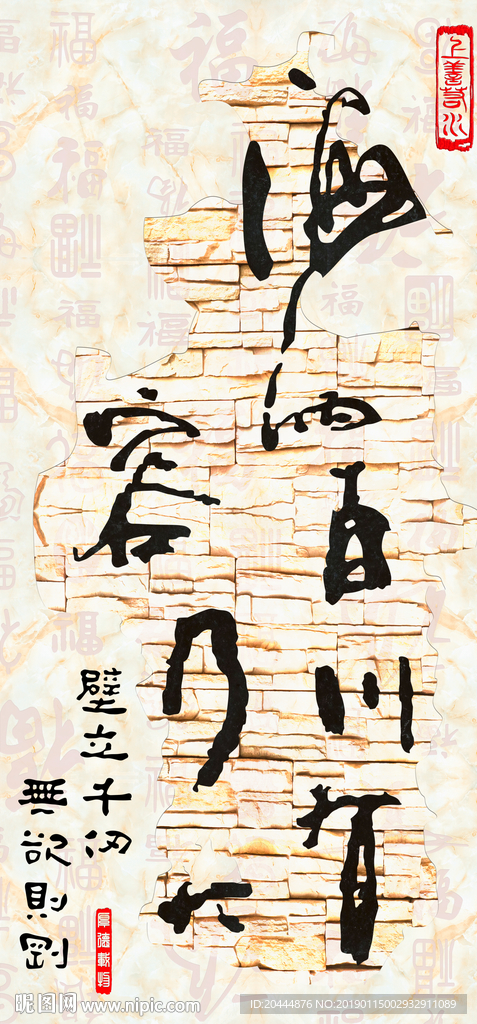 上善若水
海納百川有
容乃大
壁立千仞
無欲則剛
厚德載物
昵图网 www.nipic.com
ID:20444876 NO:20190115002932911089